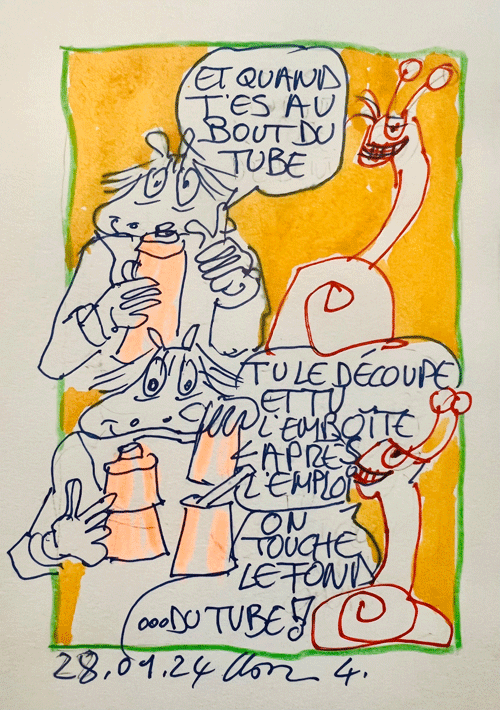 ET QUAND
T'ES AU
BOUT DU
TUBE
TU LE DÉCOUPE
ET TU
L'EMBOÎTE
APRÈS
L'EMPLOI
ON
TOUCHE
LE FOND
...DU TUBE!
28.01.24
4.